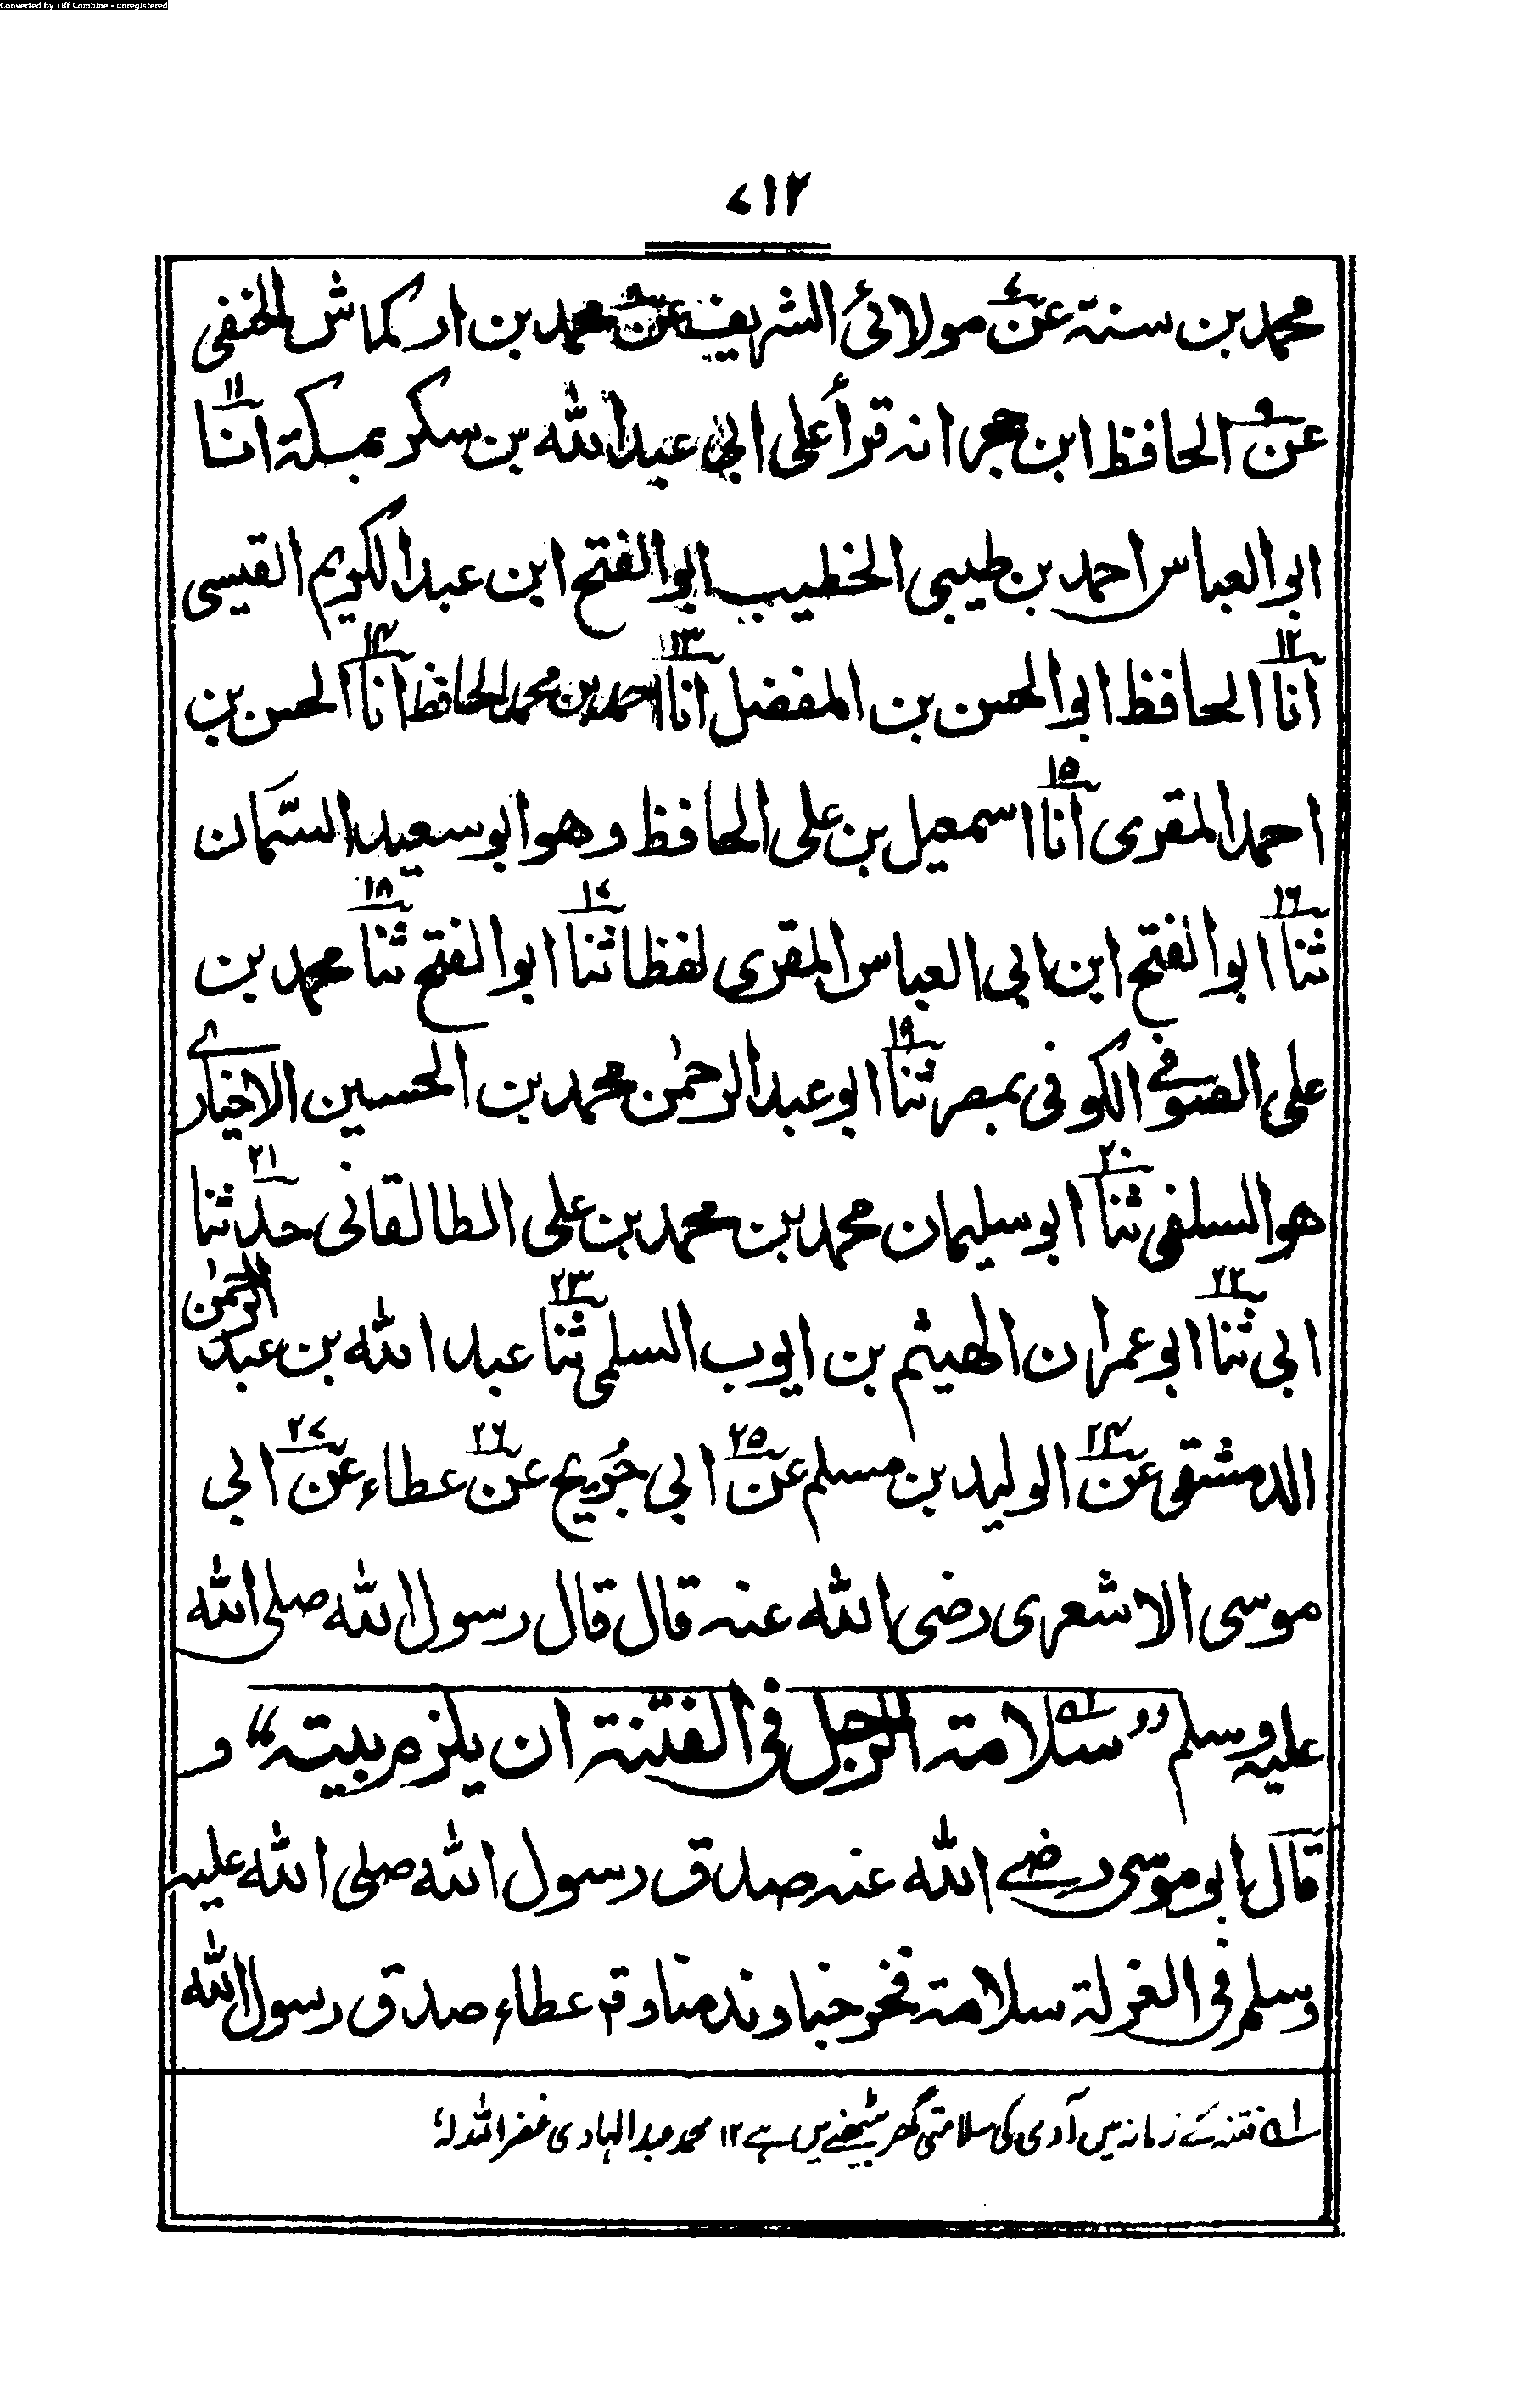 Converted by Tiff Combine - unregistered
٧١٢
محمد بن سنة عن مولائی الشریف عن محمد بن ارکماش الحنفی
عن الحافظ ابن حجر انہ قرأ علی ابی عبد اللہ بن سکر بمکة انا
ابو العباس احمد بن طیبی الخطیب ابو الفتح ابن عبد الکریم القیسی
انا الحافظ ابو الحسن بن المفضل انا احمد بن محمد الحافظ انا الحسن بن
احمد المقری انا اسمعیل بن علی الحافظ وھو ابو سعید السّمان
ثنا ابو الفتح ابن ابی العباس المقری لفظا ثنا ابو الفتح ثنا محمد بن
علی الصوفی الکوفی بمصر ثنا ابو عبد الرحمٰن محمد بن الحسین الاخباری
ھو السلفی ثنا ابو سلیمان محمد بن محمد بن علی الطالقانی حدثنا
ابی ثنا ابو عمران الھیثم بن ایوب السلمی ثنا عبد اللہ بن عبد الرحمٰن
الدمشقی عن الولید بن مسلم عن ابی جُریج عن عطاء عن ابی
موسی الاشعری رضی اللہ عنہ قال قال رسول اللہ صلی اللہ
علیہ وسلم ”سلامة الرجل فی الفتنة ان یلزم بیتہ“ و
قال ابو موسی رضی اللہ عنہ صدق رسول اللہ صلی اللہ علیہ
وسلم فی العزلة سلامة عطاء صدق رسول اللہ
لہ فتنہ کے زمانہ میں آدمی کی سلامتی گھر بیٹھنے میں ہے ١٢ محمد عبد الہادی غفر اللہ لہٗ